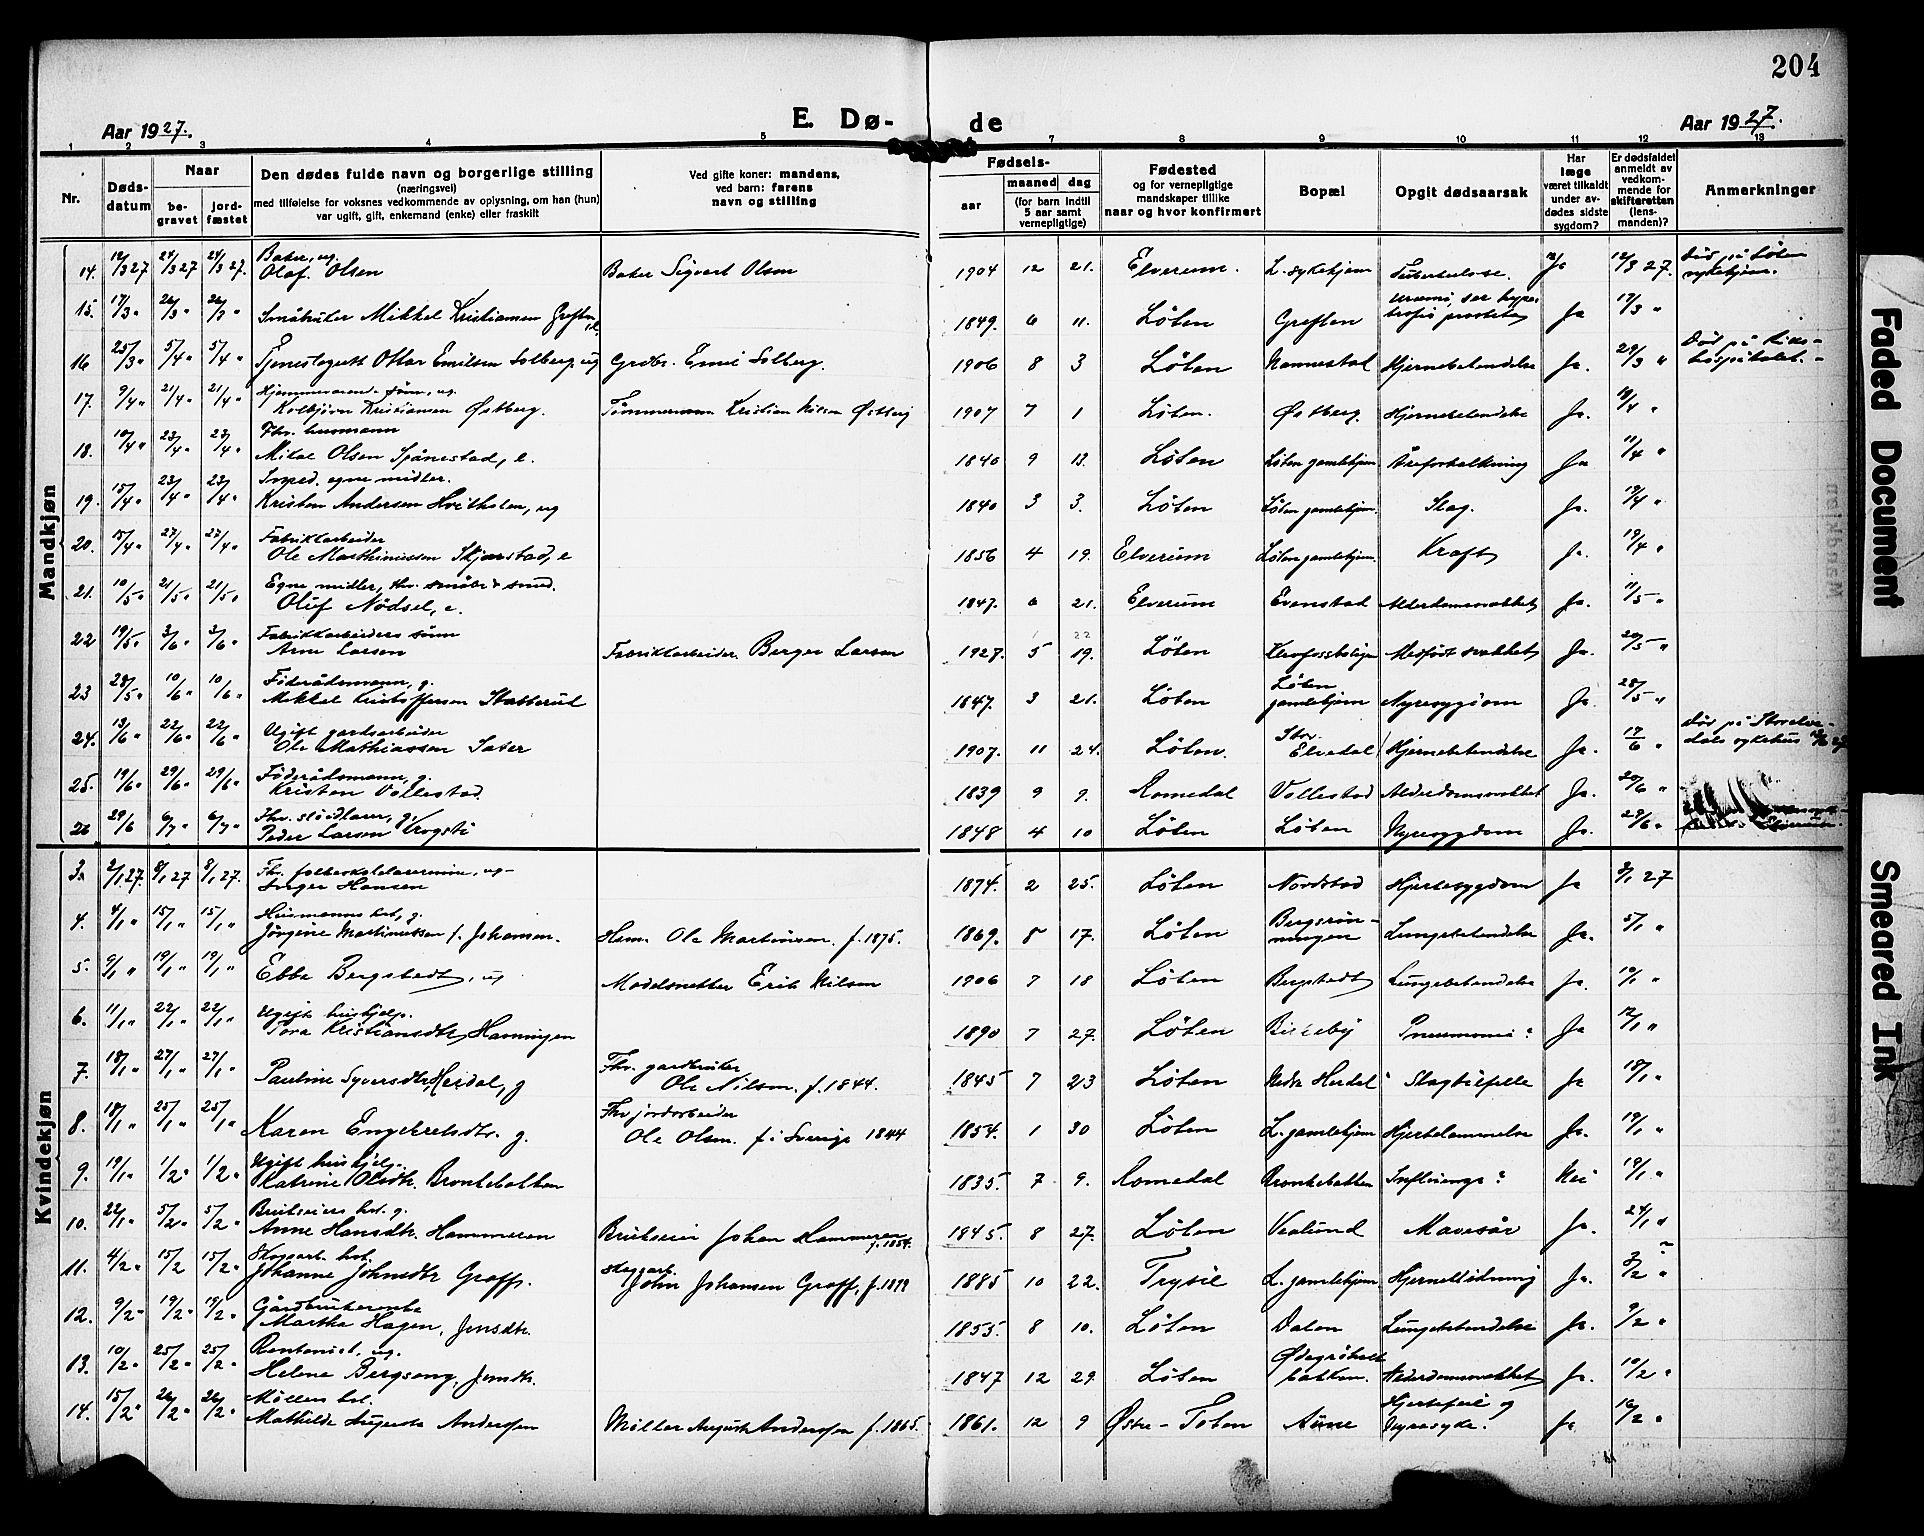 204
E. Dø-
de
Aar 1927.
Aar 1927.
1 2 3 4 5 7 8 9 10 11 12 13
Nr.
Døds-
datum
Naar
be-
gravet
jord-
fæstet
Den dødes fulde navn og borgerlige stilling
(næringsvei)
med tilføielse for voksnes vedkommende av oplysning, om han (hun)
var ugift, gift, enkemand (enke) eller fraskilt
Ved gifte koner: mandens,
ved barn: farens
navn og stilling
Fødsels-
aar
maaned dag
(for barn indtil
5 aar samt
vernepligtige)
Fødested
og for vernepligtige
mandskaper tillike
naar og hvor konfirmert
Bopæl
Opgit dødsaarsak
Har
læge
været tilkaldt
under av-
dødes sidste
sygdom?
Er dødsfaldet
anmeldt av
vedkom-
mende for
skifteretten
(lens-
manden)?
Anmerkninger
Mandkjøn
14. 12/3 27 24/3 27 24/3 27. Baker, ug.
Olaf Olsen Baker Sigvart Olsen 1904 12 21. Elverum. L. sykehjem Tuberkulose. Ja 12/3 27. Død på Løten
sykehjem.
15. 17/3 " 26/3 " 26/3 " Småbruker Mikkel Kristiansen Greften, 1849. 6 11. Løten Greften Ja 17/3 "
16 25/3 " 5/4 " 5/4 " Tjenestegutt Ottar Emilsen Solberg, ug Grdbr. Emil Solberg. 1906 8 3 Løten Hjernebetendelse Ja. 29/3 " Død på Riks-
hospitalet.
17. 9/4 " 21/4 " 21/4 " Hjemmeværende sønn, ug.
Kolbjørn Kristiansen Østberg. Tømmermann Kristian Nilsen Østberg 1907 7 1 Løten. Østberg. Hjernebetendelse Ja. "
18. 10/4 " 23/4 " 23/4 " Fhv. husmann
Mikal Olsen Spånestad, e. 1840 9 13. Løten Løten gamlehjem Åreforkalkning Ja 11/4 "
19. 15/4 " 23/4 " 23/4 " egne midler.
Kristen Andersen Hvithsten, ug 1840 3 3. Løten Løten gamlehjem. Slag. Ja. 19/4 "
20. 15/4 " 27/4 " 27/4 " Fabrikkarbeider
Ole Marthinussen Skjærstad, e 1856 4 19. Elverum Løten gamlehjem Kræft Ja. 19/4 "
21. 10/5 " 21/5 " 21/5 " Egne midler, fhv. småbr. & smed.
Oluf Nødsel, e. 1847. 6 21. Elverum Evenstad Alderdomssvakhet Ja. 11/5 "
22 19/5 " 3/6 " 3/6 " Fabrikkarbeiders sønn
Arne Larsen Fabrikkarbeider. Berger Larsen 1927. 5 19. Løten Klevfossbolign Medfødt svakhet Ja. 20/5 "
23 28/5 " 10/6 " 10/6 " Føderådsmann, g.
Mikkel Kristoffersen Stabberud 1847. 3 21. Løten Løten
gamlehjem Nyresygdom Ja. 28/5 "
24. 13/6 " 22/6 " 22/6 " Ugift gardsarbeider
Ole Mathiassen Sæter 1907. 11 24. Løten. Stor
Elvedal Hjernebetendelse Ja. 17/6 " Død på Storelve-
dals sykehus
25. 19/6 " 29/6 " 29/6 " Føderådsmann, g.
Kristen Vollestad. 1839 9 9. Romedal Vollestad Alderdomssvakhet Ja. 20/6 "
26 29/6 6/7 " 6/7 " Fhv. g.
Peder Larsen Krogsti 1848 4 10 Løten Løten Nyresygdom Ja. 29/6 "
Kvindekjøn
3. 2/1 27. 8/1 27 8/1 27. Fhv. folkeskolelærerinne, ug.
Inger Hansen 1874. 2 25. Løten Nordstad Hjertesygdom Ja 3/1 27
4. 4/1 " 15/1 " 15/1 " Husmanns hst, g.
Jørgine Martinussen f. Johansen. Hsm. Ole Martinusen. f. 1875. 1869. 8 17. Løten Bergsrøn-
ningen Lungebetendelse Ja. 5/1 "
5. 9/1 " 19/1 " 19/1 " Ebba Bergstedt, ug Modelsnekker Erik Nilsen 1906 7 18 Løten Bergstedt Lungebetendelse Ja. 10/1 "
6. 11/1 " 22/1 " 22/1 " Ugift hushjelp.
Tora Kristiansdtr. Hanningen 1890 7 27. Løten Birkeby Pneumonia? Ja 12/1 "
7. 18/1 " 27/1 " 27/1 " Pauline Syversdtr. Herdal, g Fhv. gardbruker
Ole Nilsen. f. 1844. 1845 7 23 Løten Nedre Herdal Slagtilfelle Ja 18/1 "
8. 18/1 " 25/1 " 25/1 " Karen Engebretsdtr. g. Fhv jordarbeider
Ole Olsen. f. i Sverige 1844 1854. 1 30 Løten L. gamlehjem Hjertelammelse Ja. 19/1 "
9. 19/1 " 1/2 " 1/2 " Ugift hushjelp.
Katrine Olsdtr. Bronkebakken 1835. 7 9. Romedal Bronkebakken Influensa? Nei 19/1 "
10. 22/1 " 5/2 " 5/2 " Brukseiers hst. g.
Anne Hansdtr. Hammeren Brukseier Johan Hammeren
f. 1854. 1845. 8 27. Løten Vealund Mavesår Ja. 24/1 "
11. 4/2 " 15/2 15/2 " Skogsarb. hst.
Johanne Johnsdtr Graff. Skogsarb.
John Johansen Graff, f. 1879 1885 10 22. Trysil L. gamlehjem Hjernelidning Ja. "
12. 9/2 " 19/2 " 19/2 " Gårdbrukerenke
Martha Hagen, Jensdtr. 1855. 8 10. Løten Dalen Lungebetendelse Ja. 9/2 "
13. 10/2 " 25/2 " 25/2 " Rentenist. ug.
Helene Bergseng, Jensdtr. 1847 12 29. Løten bakken. Alderdomssvakhet Ja. 10/2 "
14. 15/2 " 26/2 " 26/2 " Møllers hst.
Mathilde Augusta Andersen Møller August Andersen f. 1865. 1861. 12 9 Østre-Toten Aune Hjertefeil og
Nyresyke. Ja 16/2 "
Faded Document
Smeared Ink